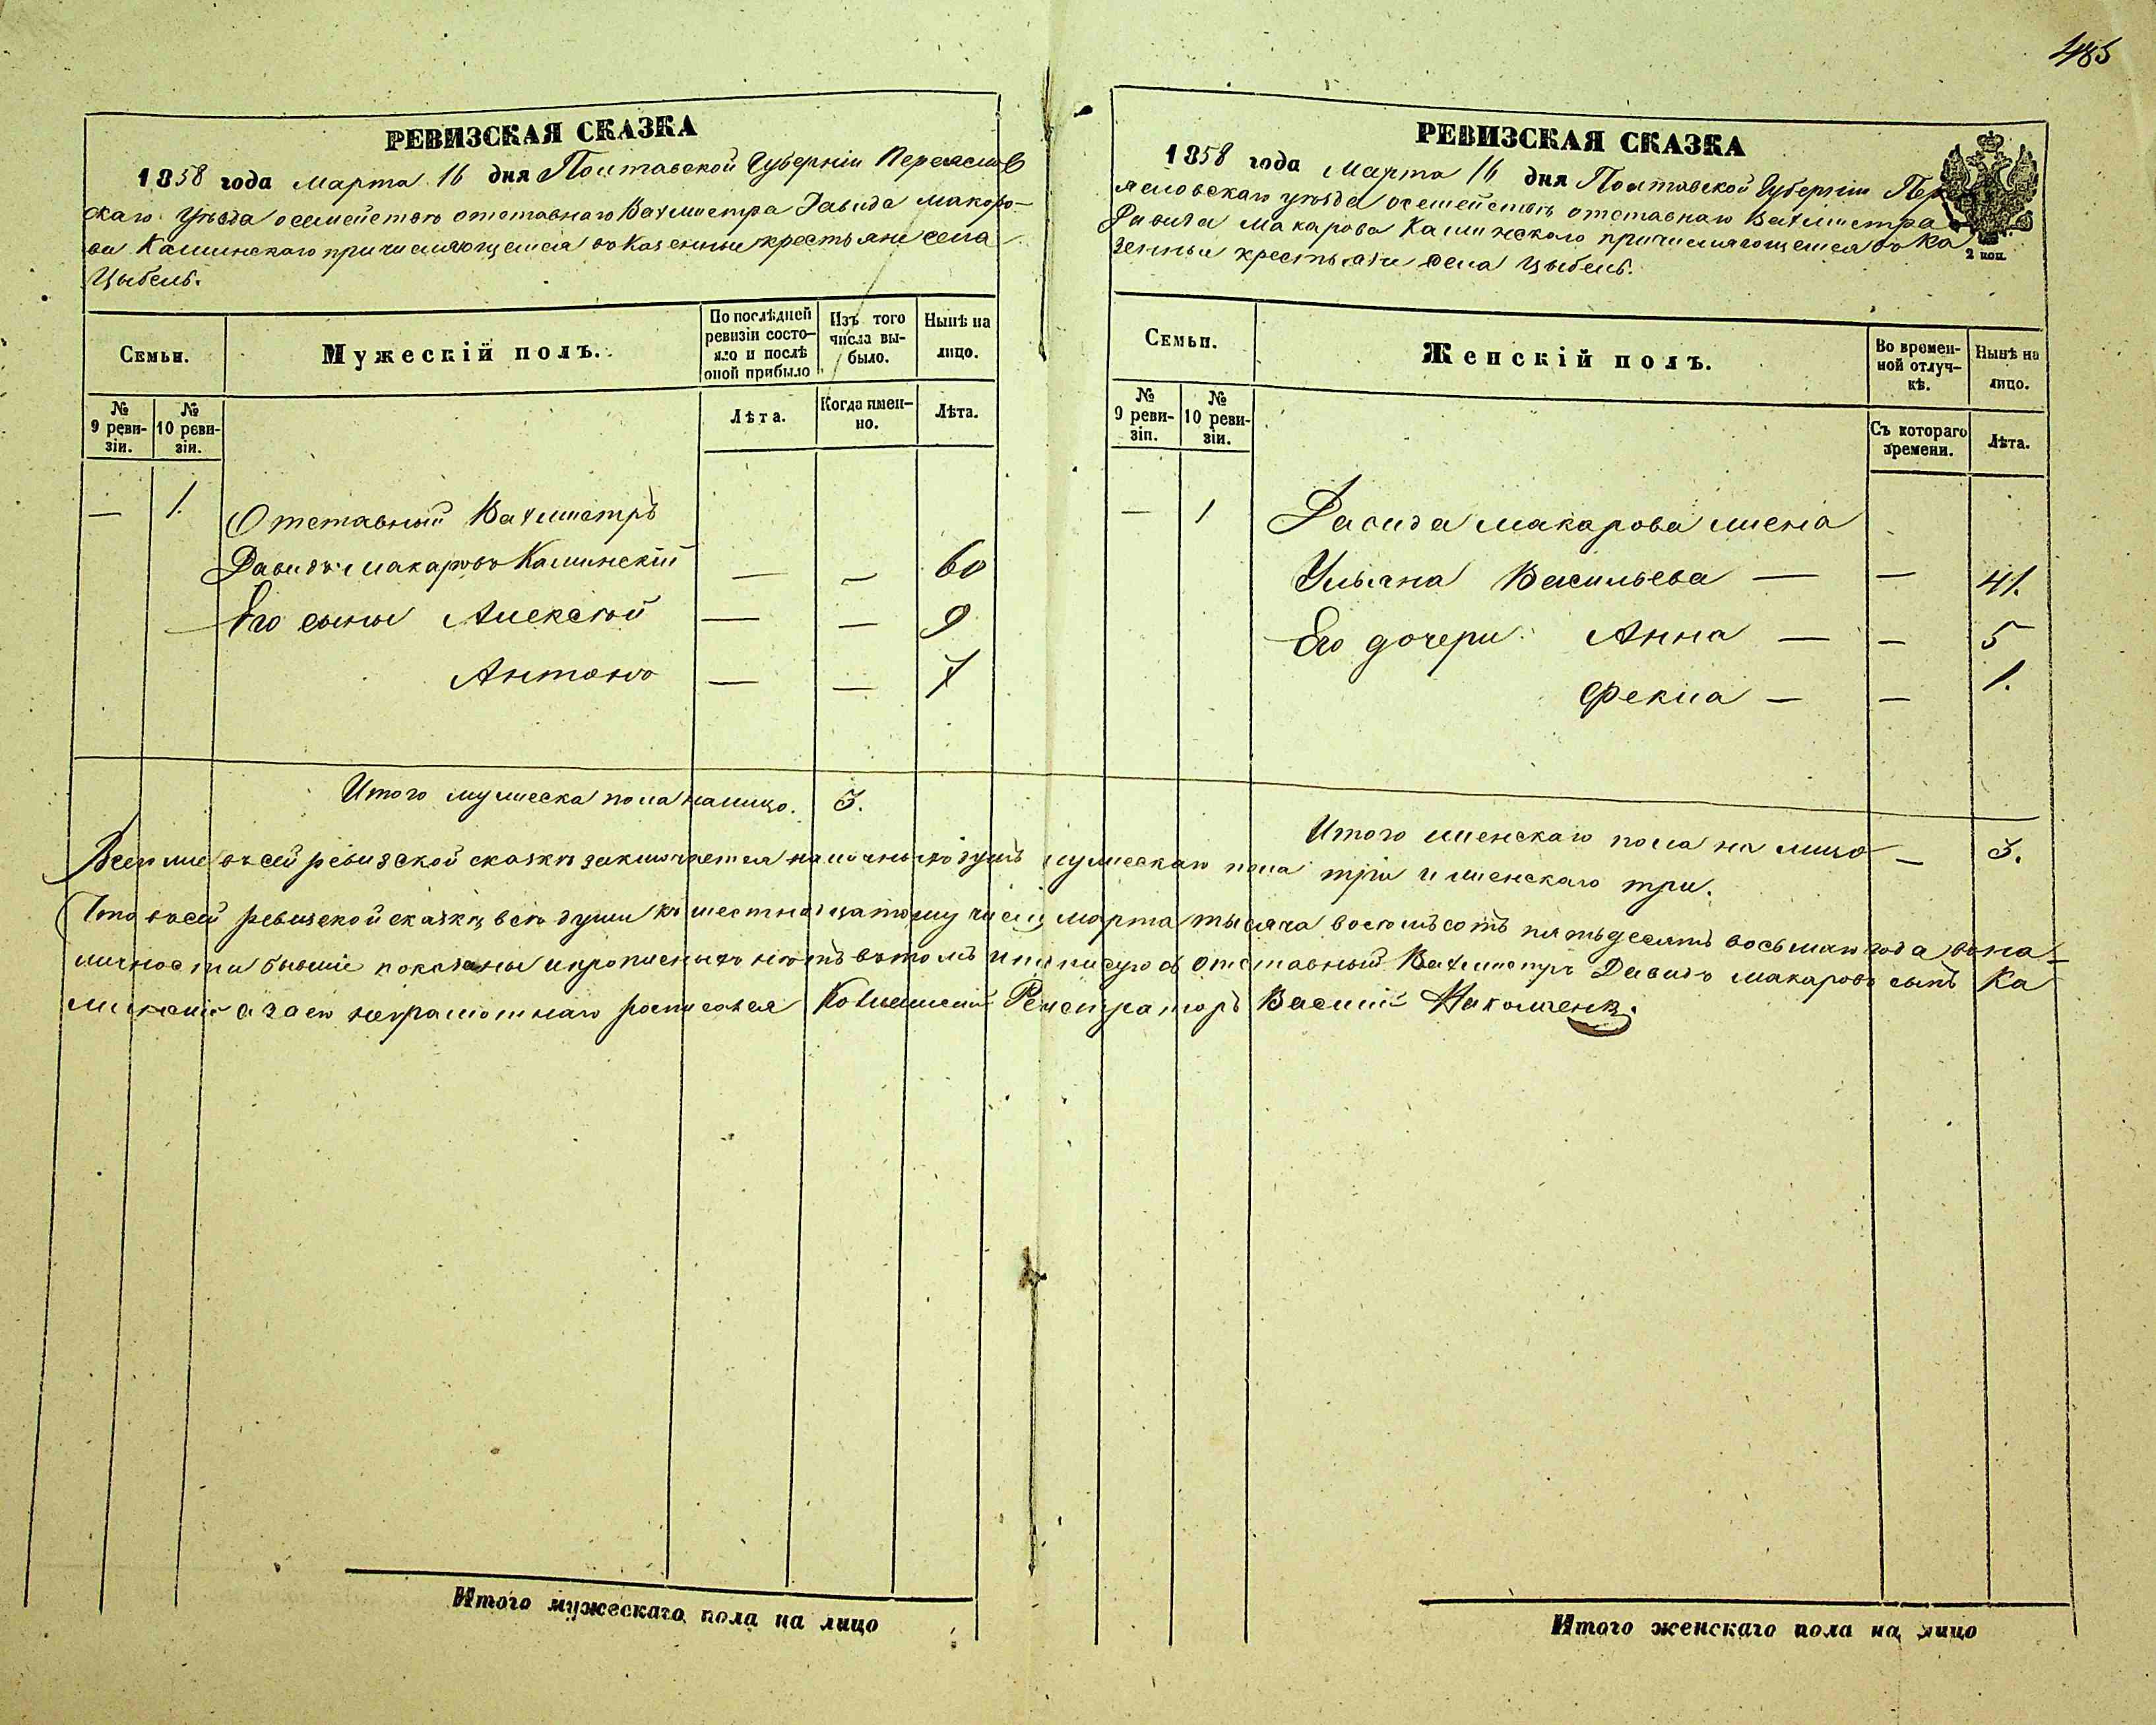 485
РЕВИЗСКАЯ СКАЗКА
1858 года Марта 16 дня Полтавской Губерніи Переяслов
скаго Уѣзда о семействѣ отставнаго Вахмистра Давида Макаро-
ва Каминскаго причисляющемся въ Казенные крестьяне села
Цыбель.
Семьи.
Мужескій полъ.
По послѣдней
ревизіи состо-
яло и послѣ
оной прибыло
Изъ того
числа вы-
было.
Нынѣ на
лицо.
№
9 реви-
зіи.
№
10 реви-
зіи.
Лѣта.
Когда имен-
но.
Лѣта.
— 1. Отставный Вахмистръ
Давидъ Макаровъ Каминскій — — 60
Его сыны Алексѣй — — 9
Антонъ — — 7
Итого мужеска пола налицо. 3.
РЕВИЗСКАЯ СКАЗКА
1858 года Марта 16 дня Полтавской Губерніи Пер
яславскаго уѣзда о семействѣ отставнаго Вахмистра
Давида Макарова Каминскаго причисляющемся въ Ка
зенные крестьяне села Цыбель.
2 коп.
Семьи.
Женскій полъ.
Во времен-
ной отлуч-
кѣ.
Нынѣ на
лицо.
№
9 реви-
зіи.
№
10 реви-
зіи.
Съ котораго
времени.
Лѣта.
— 1 Давида Макарова жена
Ульяна Васильева — — 41.
Его дочери: Анна — — 5
Фекла — — 1.
Итого женскаго пола на лицо — 3.
Всего же въ сей ревизской сказкѣ заключается наличныхъ душъ мужескаго пола три и женскаго три.
Что въ сей ревизской сказкѣ всѣ души къ шестнадцатому числу марта тысяча восемьсотъ пятьдесятъ восьмаго года въ на-
личности бывшіе показаны и прописныхъ нѣтъ въ томъ и подписуюсь отставный Вахмистръ Давидъ Макаровъ сынъ Ка
минскій а за его неграмотнаго росписался Коллежскій Регистраторъ Василій
Итого мужескаго пола на лицо
Итого женскаго пола на лицо